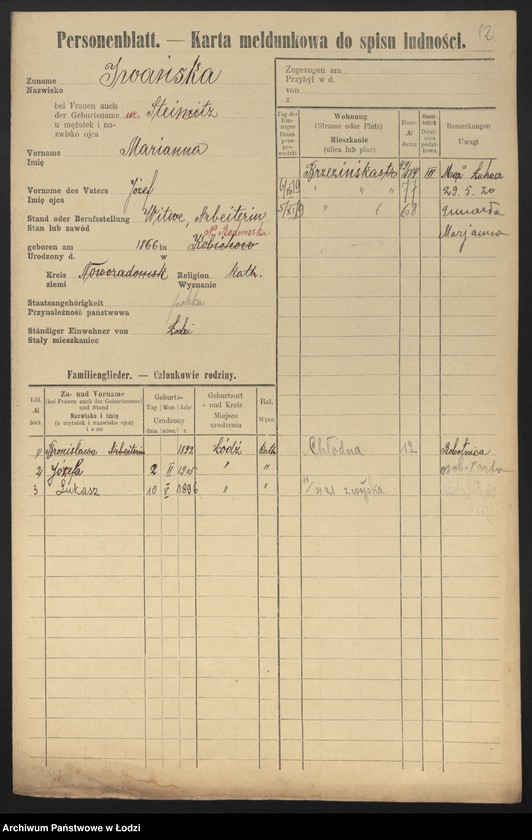 12
Personenblatt. — Karta meldunkowa do spisu ludności.
Zuname
Nazwisko
Iwańska
bei Frauen auch
der Geburtsname
u mężatek i na-
zwisko ojca
Steinitz
Vorname
Imię
Marianna
Vorname des Vaters
Imię ojca
Józef
Stand oder Berufsstellung
Stan lub zawód
Witwe, Arbeiterin
geboren am 1866 in
Urodzony d. w
Kreis
ziemi
Noworadomsk
Religion
Wyznanie
Kath.
Staatsangehörigkeit
Przynależność państwowa
Ständiger Einwohner von
Stały mieszkaniec
Łodzi
Zugezogen am
Przybył w d.
von
z
Tag der Um-
zuges
Dzień
prze-
prowadzki
Wohnung
(Strasse oder Platz)
Mieszkanie
(ulica lub plac)
Haus-
№
domu
Bemerkungen
Uwagi
Brzezińskastr. III Mąż Łukasz
" " 77 29.5.20
" 68 umarła
Marjanna
Familienglieder. — Członkowie rodziny.
Lfd.
№
bież.
Zu- und Vorname
(bei Frauen auch der Geburtsname)
und Stand
Nazwisko i imię
(u mężatek i nazwisko ojca)
i stan
Geburts-
Tag Mon. Jahr
Urodzony
dnia mies. r.
Geburtsort
und Kreis
Miejsce
urodzenia
Rel.
Wyzn.
1 Bronisława Arbeiterin 1892 Łódź Kath. Chłodna 12 Robotnica
2 Józefa 2 II 1905 " "
3 Łukasz 10 V 1896 " "
Archiwum Państwowe w Łodzi